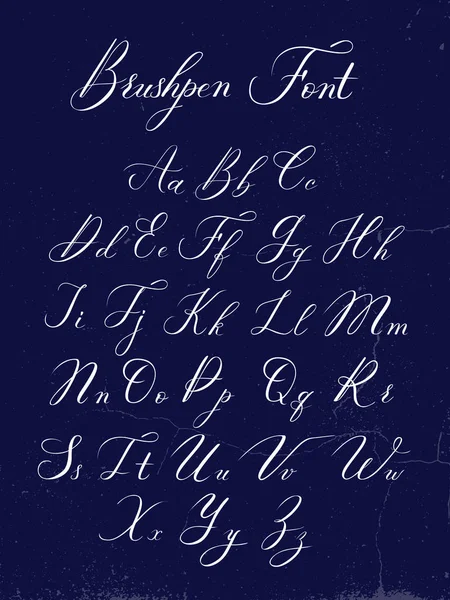 Brushpen Font
Aa Bb Cc
Dd Ee Ff Gg Hh
Ii Jj Kk Ll Mm
Nn Oo Pp Qq Rr
Ss Tt Uu Vv Ww
Xx Yy Zz